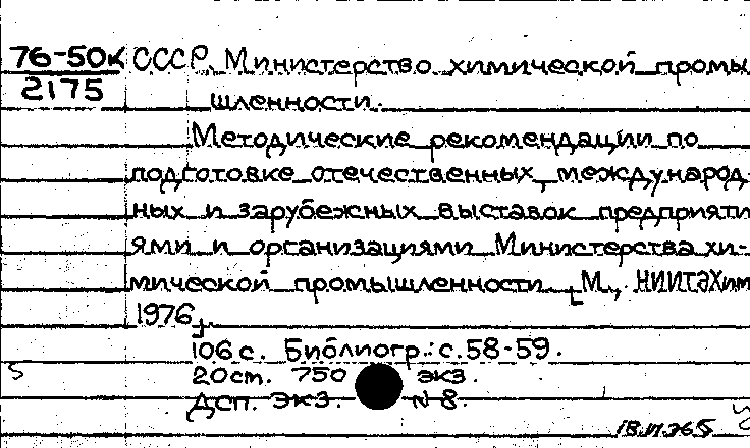 76-50к СССР. Министерство химической промы
2175 шленности.
Методические рекомендации по
подготовке отечественных, международ-
ных и зарубежных выставок предприяти
ями и организациями Министерства хи-
мической промышленности [М., НИИТЭХим
1976]
106 с. Библиогр.: с.58-59.
20 см. 750 экз.
ДСП. Экз. N 8.